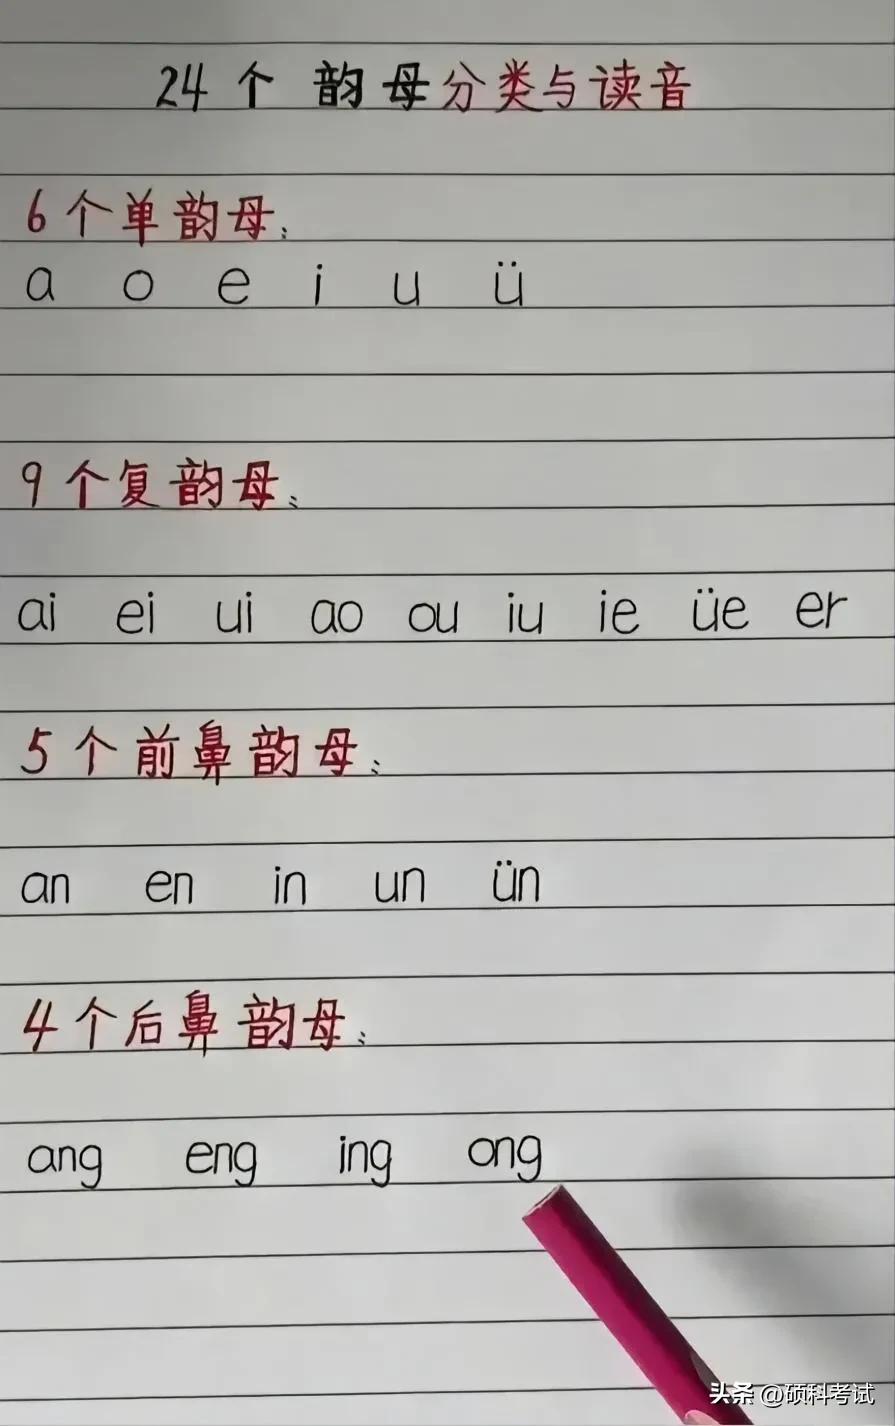 24个 韵母分类与读音
6个单韵母：
a o e i u ü
9个复韵母：
ai ei ui ao ou iu ie üe er
5个前鼻韵母：
an en in un ün
4个后鼻韵母：
ang eng ing ong
头条 @硕科考试